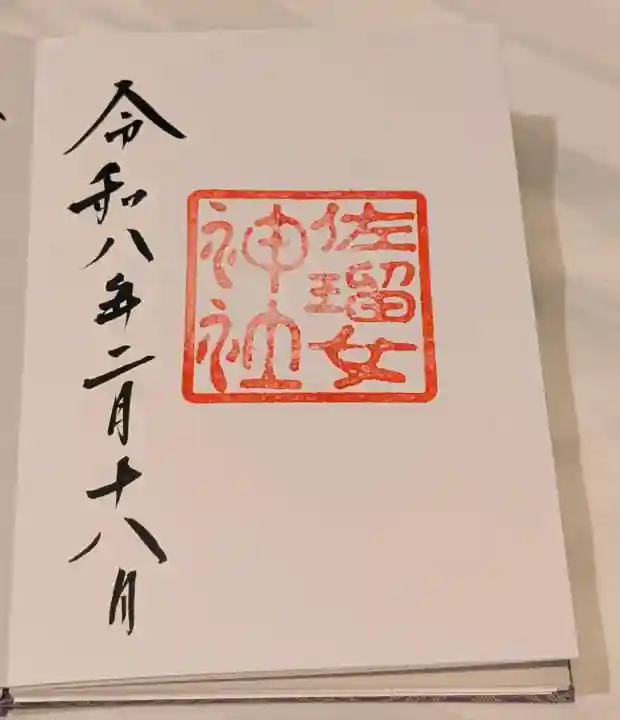 佐瑠女
神社
令和八年二月十八日